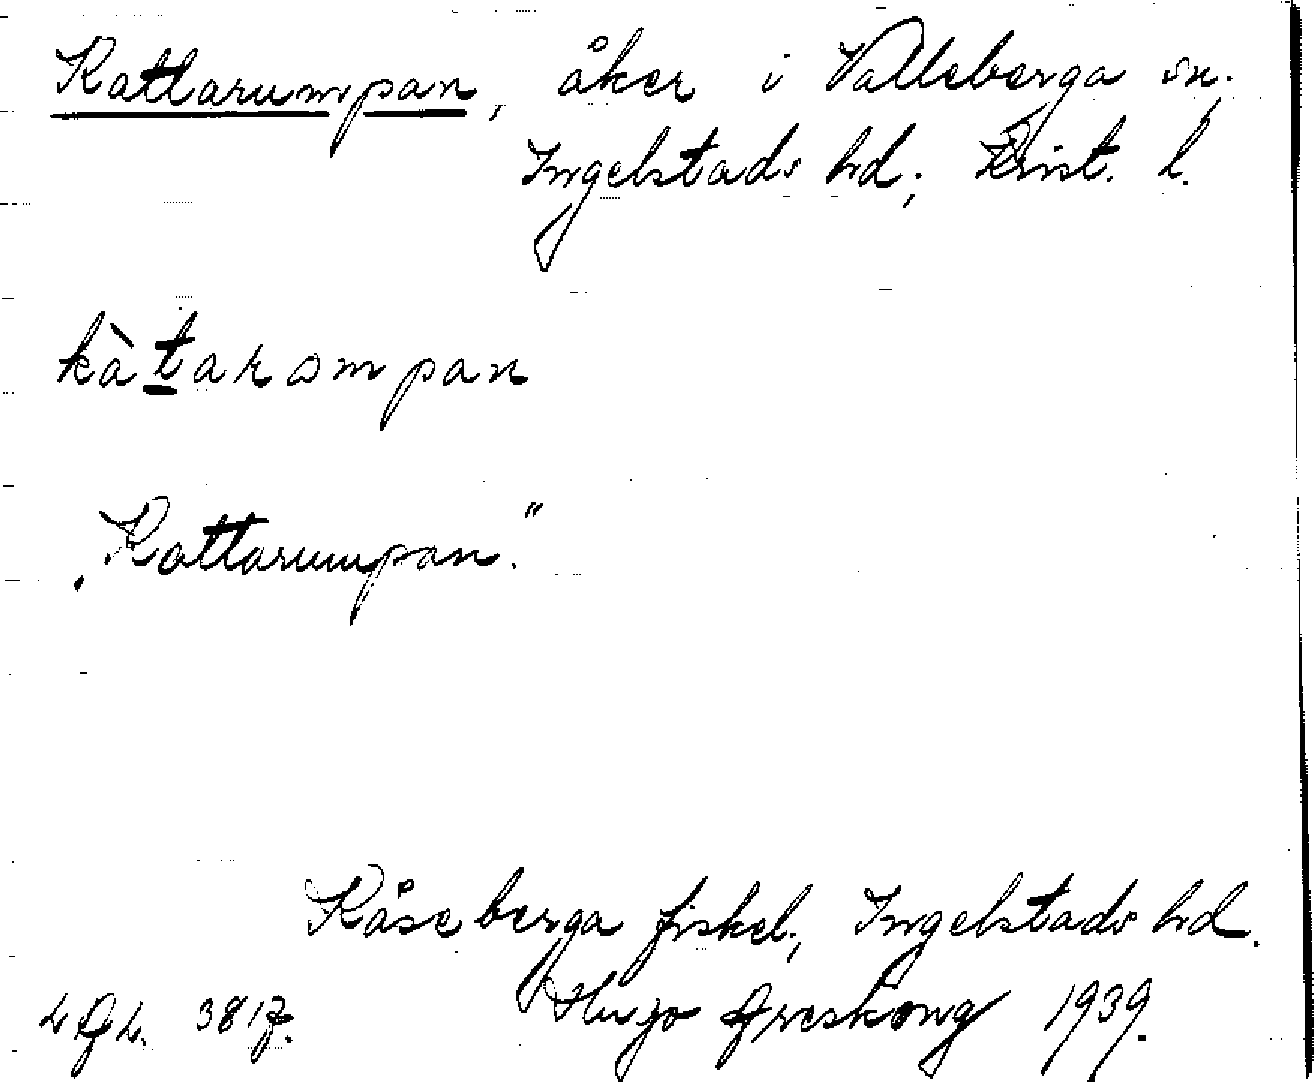 Kattarumpan, åker i Valleberga sn.
Ingelstads hd; Krist. l.
kàtarompan
„Kattarumpan."
Kåseberga fiskel., Ingelstads hd.
Hugo Areskoug 1939.
LGL. 3817.